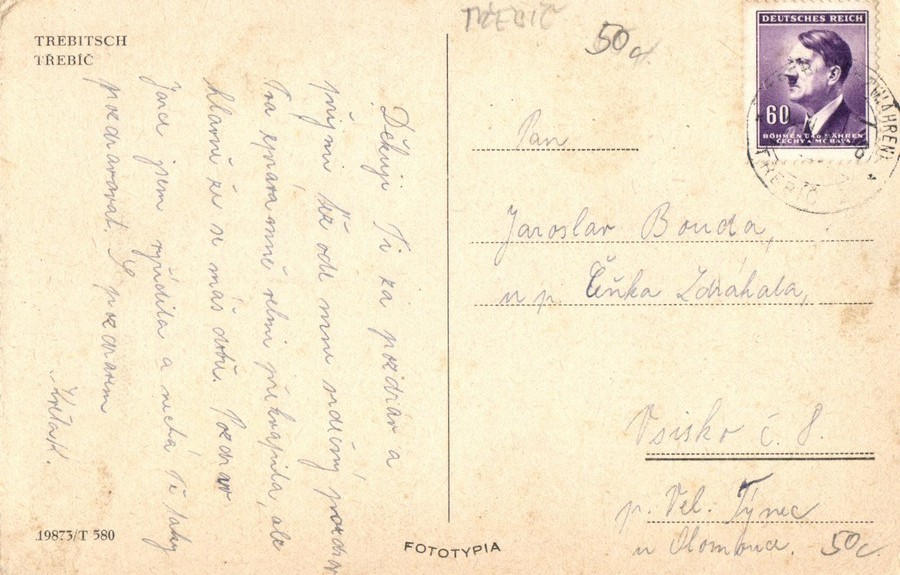 TREBITSCH
TŘEBÍČ
TŘEBÍČ
50
DEUTSCHES REICH
60
BÖHMEN UND MÄHREN
ČECHY A MORAVA
TŘEBÍČ
Děkuji Ti za pozdrav a
přijmi též ode mne srdečný pozdrav
Tvá zpráva mně velmi překvapila, ale
hlavně že se máš dobře. Pozdrav
jsem vyřídila a nechá Tě taky
pozdravovat. S pozdravem
Pan
Jaroslav Bouda,
u p. Čeňka Zdráhala,
Vsisko č. 8.
p. Vel. Týnec
u Olomouce.
50 c.
19873/T 580
FOTOTYPIA